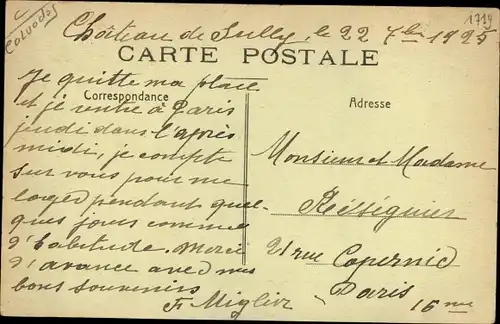 Calvados
1719
Château de Sully, le 22 7bre 1925
CARTE POSTALE
Correspondance
Adresse
Je quitte ma place
et je rentre à Paris
jeudi dans l'après
midi, je compte
sur vous pour me
loger pendant quel-
ques jours comme
d'habitude. Merci
d'avance avec mes
bons souvenirs
Monsieur et Madame
Rességuier
21 rue Copernic
Paris 16me